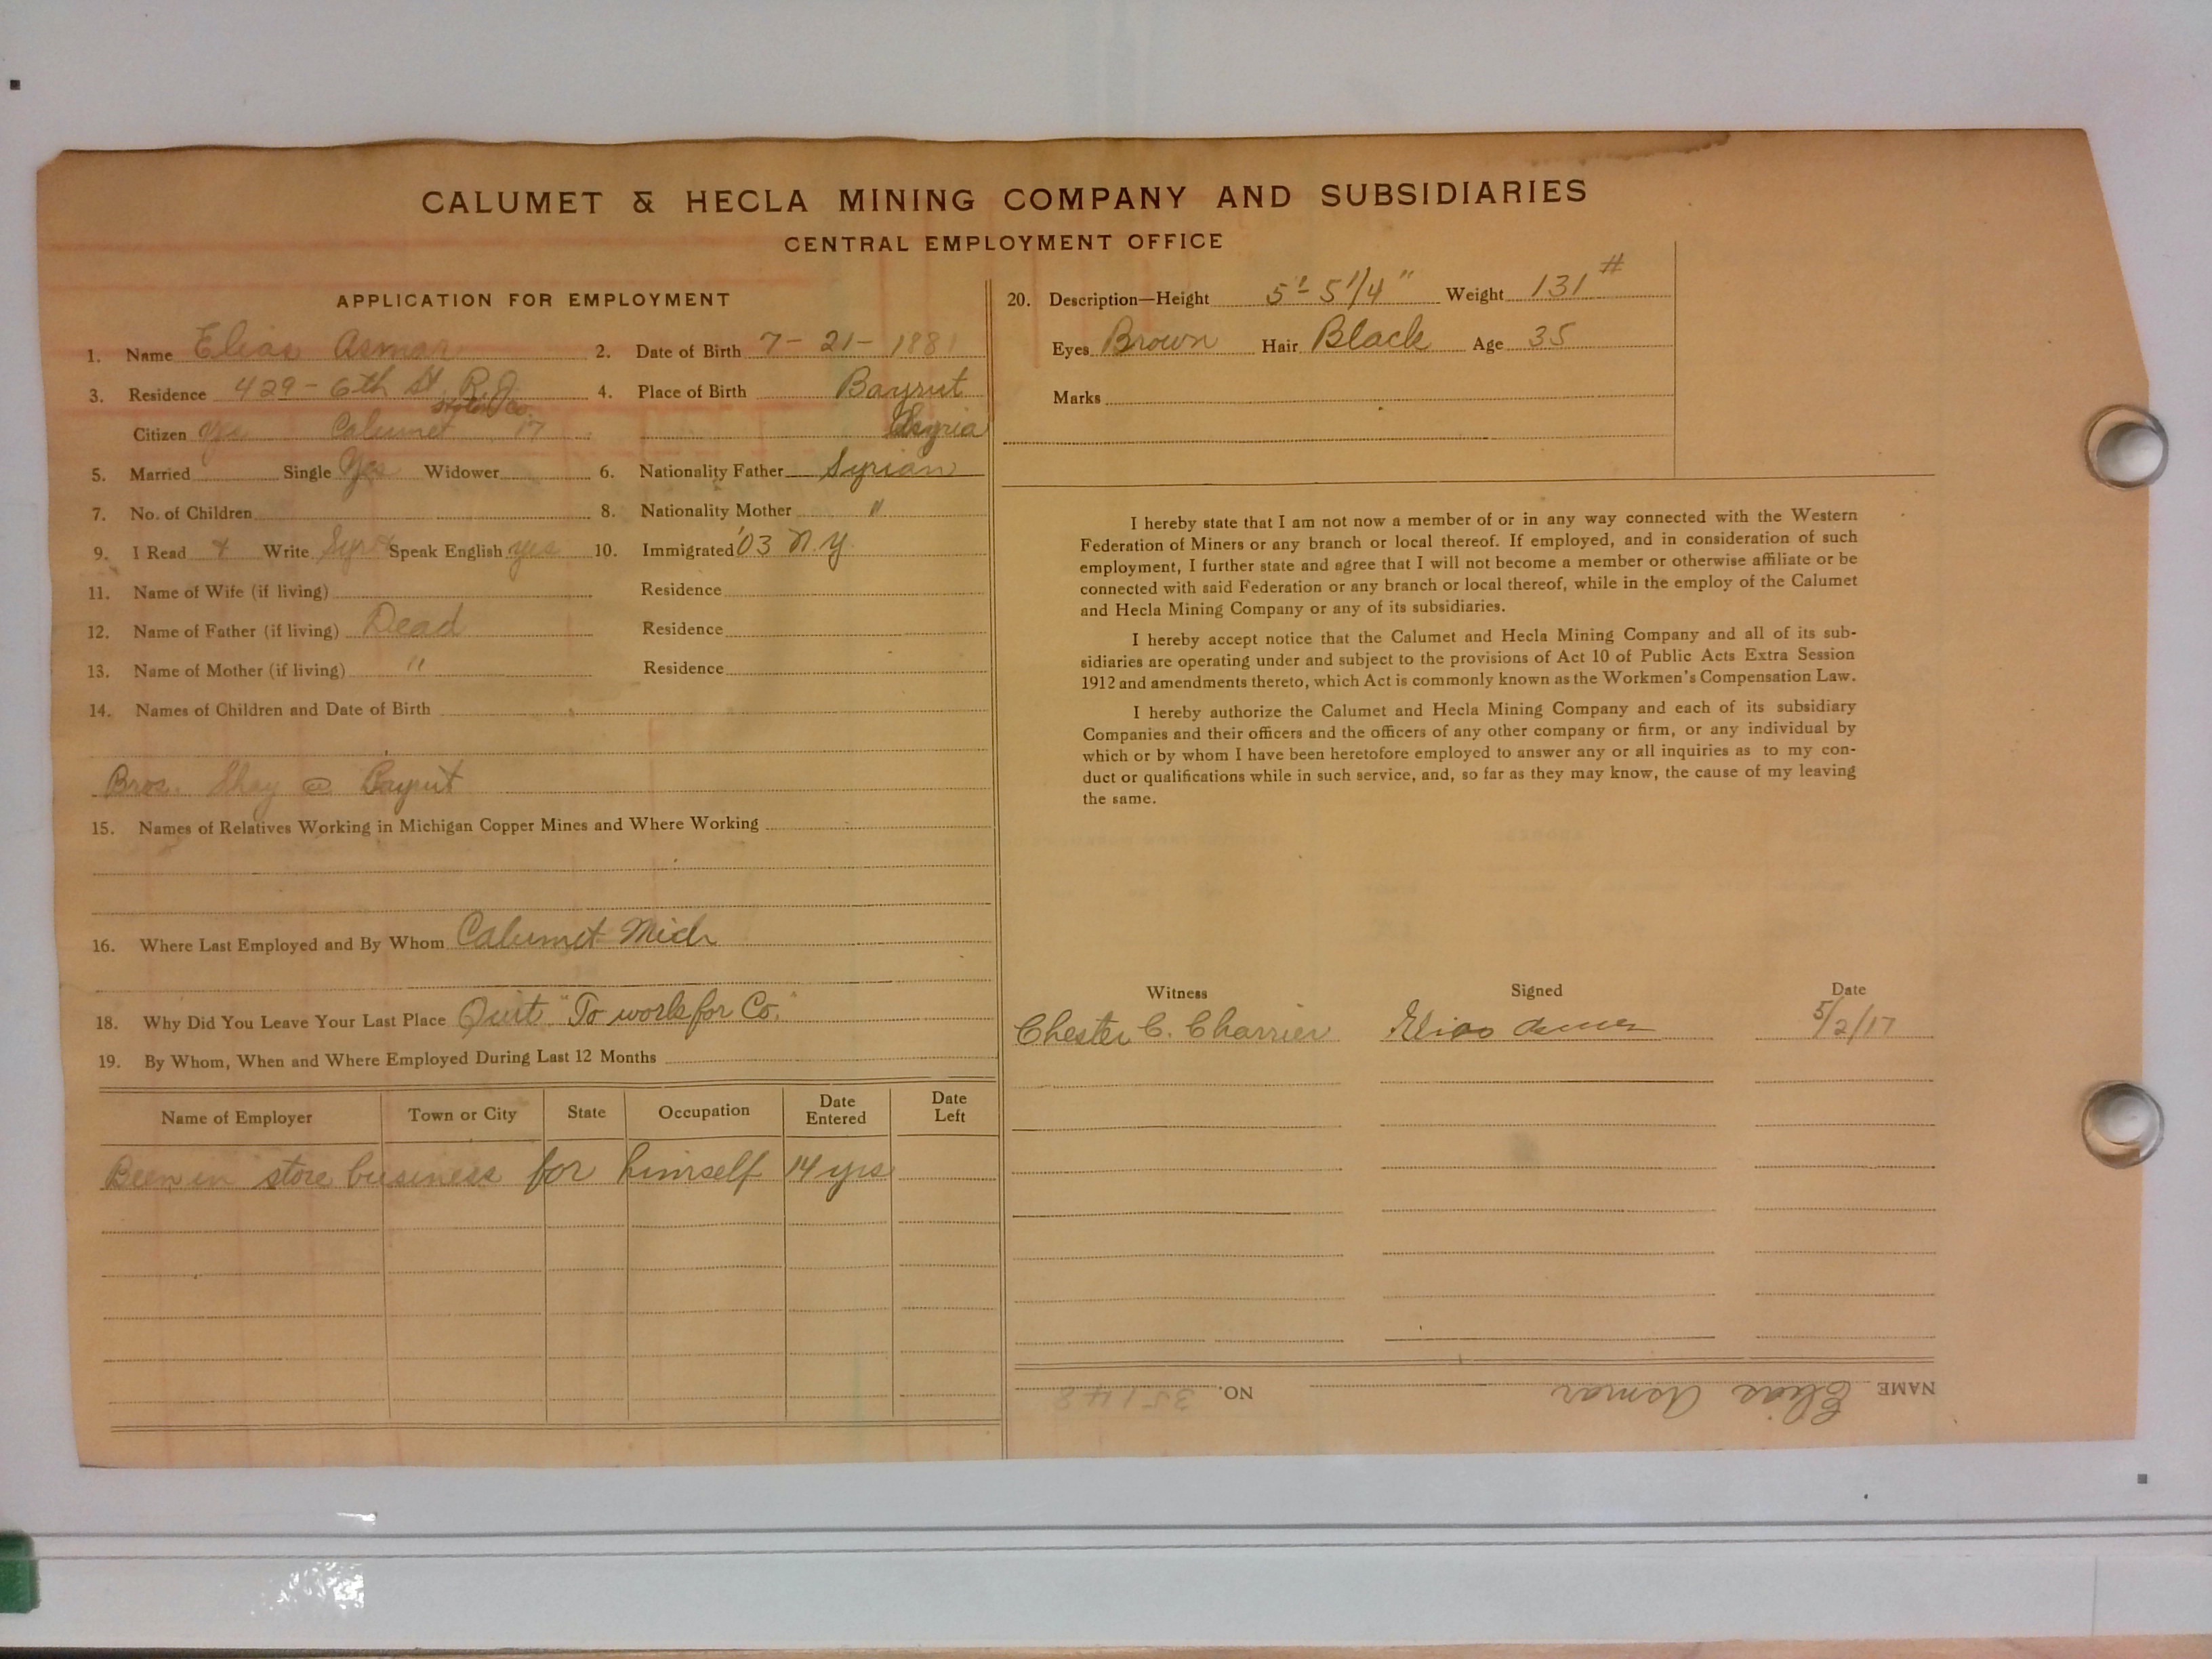 CALUMET & HECLA MINING COMPANY AND SUBSIDIARIES
CENTRAL EMPLOYMENT OFFICE
APPLICATION FOR EMPLOYMENT
1. Name Elias Asmar 2. Date of Birth 7-21-1881
3. Residence 429-6th St R.J. 4. Place of Birth Bayrut
Citizen Yes Calumet 17 Syria
5. Married Single Yes Widower 6. Nationality Father Syrian
7. No. of Children 8. Nationality Mother "
9. I Read + Write Syr + Speak English yes 10. Immigrated '03 N.Y.
11. Name of Wife (if living) Residence
12. Name of Father (if living) Dead Residence
13. Name of Mother (if living) " Residence
14. Names of Children and Date of Birth
Bros. @ Bayrut
15. Names of Relatives Working in Michigan Copper Mines and Where Working
16. Where Last Employed and By Whom Calumet Mich
18. Why Did You Leave Your Last Place Quit "To work for Co."
19. By Whom, When and Where Employed During Last 12 Months
Name of Employer Town or City State Occupation Date Entered Date Left
Been in store business for himself 14 yrs
20. Description—Height 5' 5 1/4" Weight 131#
Eyes Brown Hair Black Age 35
Marks
I hereby state that I am not now a member of or in any way connected with the Western
Federation of Miners or any branch or local thereof. If employed, and in consideration of such
employment, I further state and agree that I will not become a member or otherwise affiliate or be
connected with said Federation or any branch or local thereof, while in the employ of the Calumet
and Hecla Mining Company or any of its subsidiaries.
I hereby accept notice that the Calumet and Hecla Mining Company and all of its sub-
sidiaries are operating under and subject to the provisions of Act 10 of Public Acts Extra Session
1912 and amendments thereto, which Act is commonly known as the Workmen's Compensation Law.
I hereby authorize the Calumet and Hecla Mining Company and each of its subsidiary
Companies and their officers and the officers of any other company or firm, or any individual by
which or by whom I have been heretofore employed to answer any or all inquiries as to my con-
duct or qualifications while in such service, and, so far as they may know, the cause of my leaving
the same.
Witness Signed Date
Chester C. Charrier Elias Asmar 5/2/17
NAME Elias Asmar NO. 35148